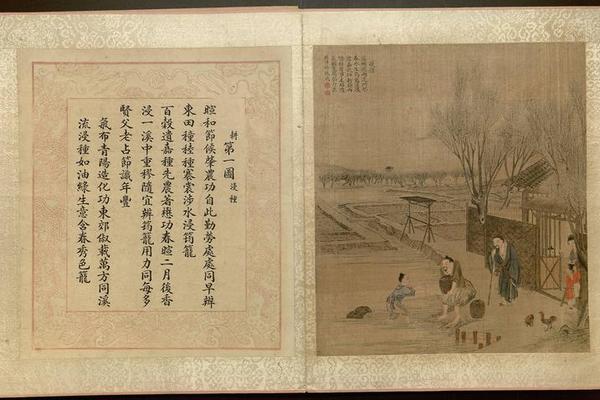 耕第一圖浸種
暄和節候肇農功自此勤勞處處同早辨
東田穜稑種褰裳涉水浸筠籠
百穀遺嘉種先農著懋功春暄二月後香
浸一溪中重穋隨宜辨筠籠用力同每多
賢父老占節識年豐
氣布青陽造化功東郊俶載萬方同溪
流浸種如油綠生意含春秀色籠